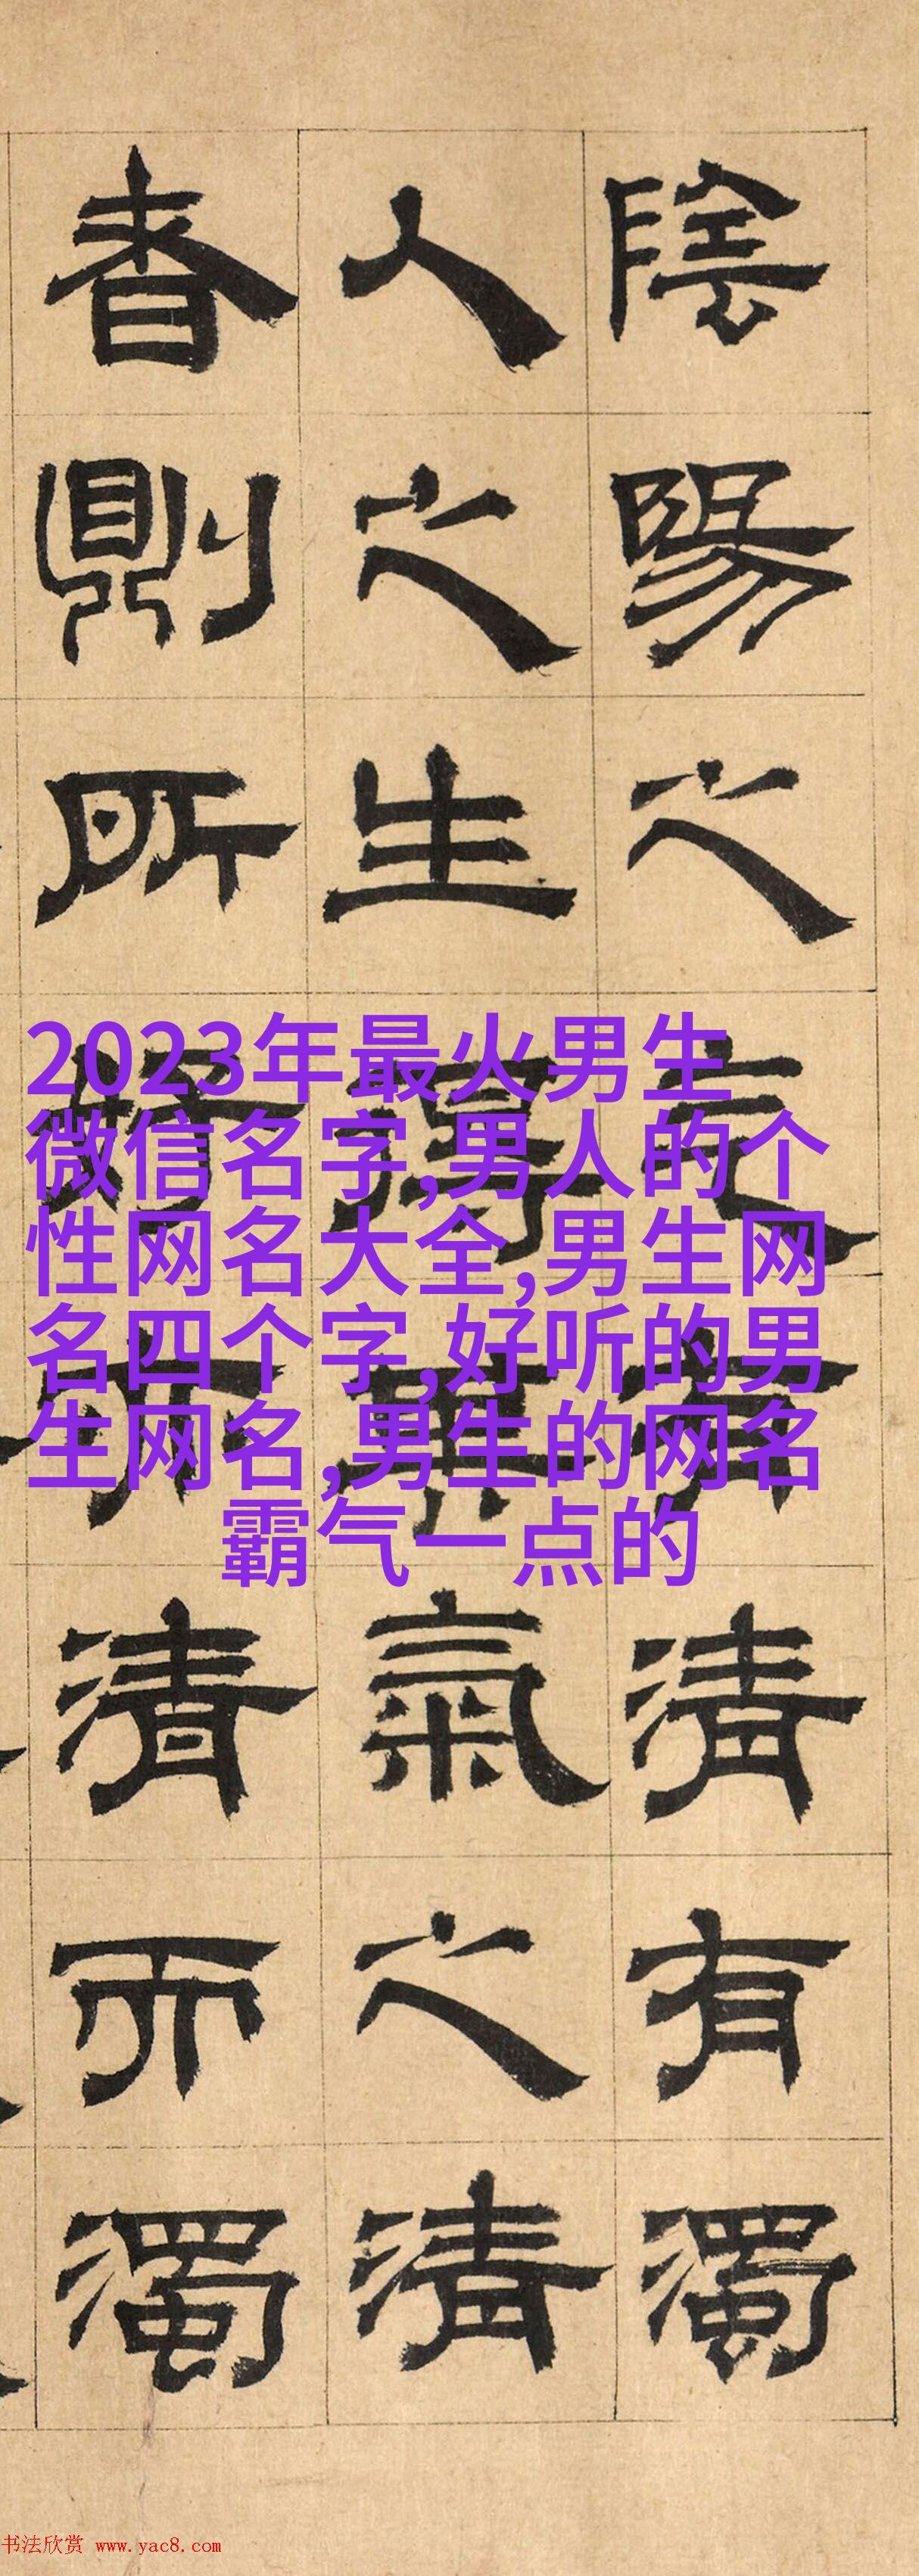 陰陽之气有清有濁
人之生得其氣之清
者則所好所清而濁
2023年最火男生
微信名字,男人的个
性网名大全,男生网
名四个字,好听的男
生网名,男生的网名
霸气一点的
书法欣赏 www.yac8.com